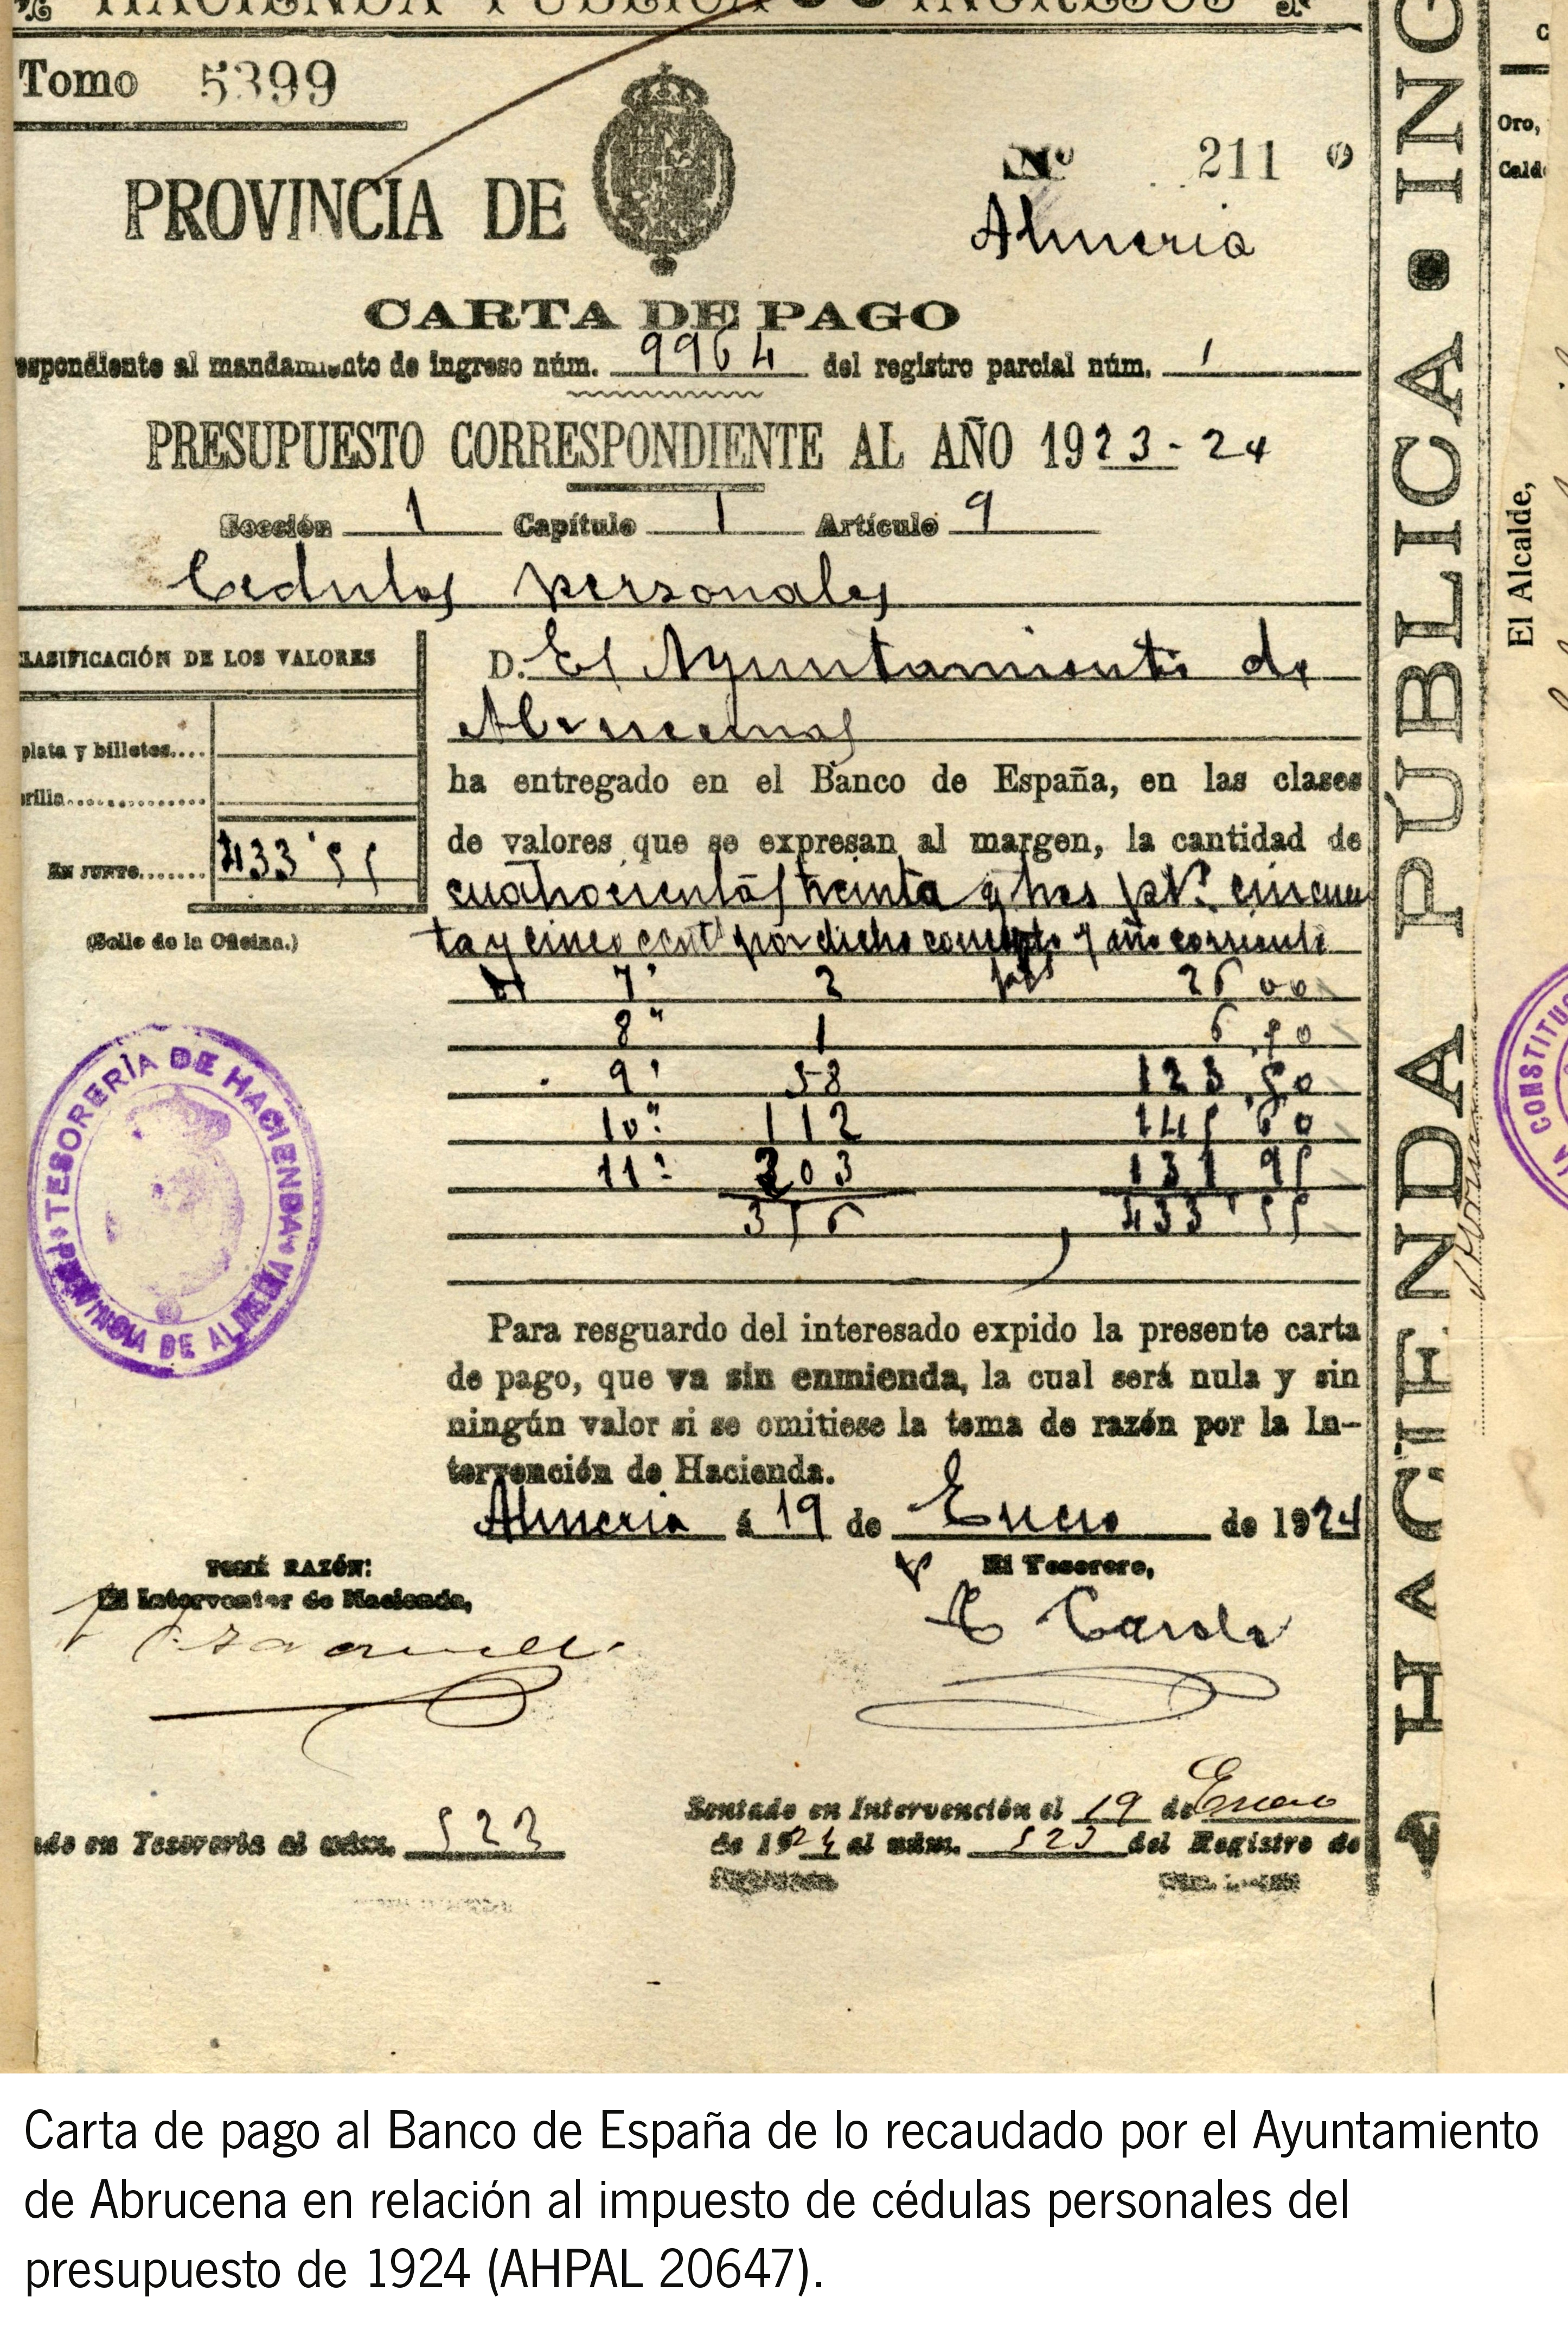 HACIENDA PÚBLICA INGRESOS
Tomo 5399
Nº 211
PROVINCIA DE Almeria
CARTA DE PAGO
espondiente al mandamiento de ingreso núm. 9964 del registro parcial núm. 1
PRESUPUESTO CORRESPONDIENTE AL AÑO 1923-24
Sección 1 Capítulo 1 Artículo 9
Cedulas personales
CLASIFICACIÓN DE LOS VALORES
plata y billetes....
rilla..............
EN JUNTO....... 433'55
(Sello de la Oficina.)
D. El Ayuntamiento de
ha entregado en el Banco de España, en las clases
de valores que se expresan al margen, la cantidad de
cuatrocientas treinta y tres pts. cincuen
ta y cinco cents por dicho concepto y año corriente
7ª 2 26 00
8ª 1
9ª 58 123,50
10ª 112 145'60
11ª 203 131 95
376 433'55
TESORERÍA DE HACIENDA
PROVINCIA DE ALMERIA
Para resguardo del interesado expido la presente carta
de pago, que va sin enmienda, la cual será nula y sin
ningún valor si se omitiese la toma de razón por la In-
tervención de Hacienda.
Almeria á 19 de Enero de 1924
TOMÉ RAZÓN:
El Interventor de Hacienda,
El Tesorero,
ado en Tesorería al núm. 523
Sentado en Intervención el 19 de Enero
de 1924 al núm. 523 del Registro de
HACIENDA PÚBLICA • ING
Oro,
El Alcalde,
CONSTITUC
Carta de pago al Banco de España de lo recaudado por el Ayuntamiento
de Abrucena en relación al impuesto de cédulas personales del
presupuesto de 1924 (AHPAL 20647).